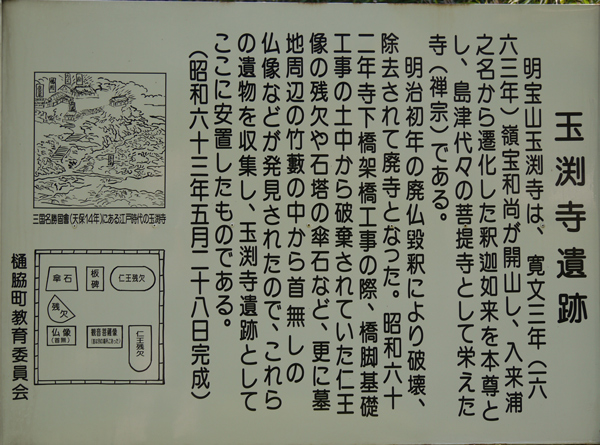 玉渕寺遺跡
明宝山玉渕寺は、寛文三年（一六
六三年）嶺宝和尚が開山し、入来浦
之名から遷化した釈迦如来を本尊と
し、島津代々の菩提寺として栄えた
寺（禅宗）である。
明治初年の廃仏毀釈により破壊、
除去されて廃寺となった。昭和六十
二年寺下橋架橋工事の際、橋脚基礎
工事の土中から破棄されていた仁王
像の残欠や石塔の傘石など、更に墓
地周辺の竹藪の中から首無しの
仏像などが発見されたので、これら
の遺物を収集し、玉渕寺遺跡として
ここに安置したものである。
（昭和六十三年五月二十八日完成）
三国名勝図會（天保14年）にある江戸時代の玉渕寺
傘石
板碑
仁王残欠
残欠
仏像
（首無）
観音菩薩像
仁王残欠
樋脇町教育委員会